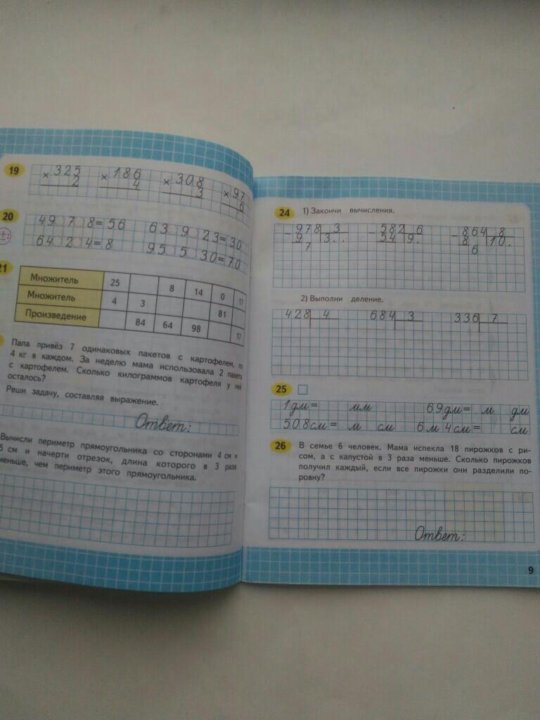 19
×325 ×186 ×308 ×97
2 4 3 6
20
49 7 8=56 63 9 23=30
64 2 4=8 95 5 30=70
21
Множитель 25 8 14 0 17
Множитель 4 3 81
Произведение 84 64 98 17
Папа привёз 7 одинаковых пакетов с картофелем, по
4 кг в каждом. За неделю мама использовала 2 пакета
с картофелем. Сколько килограммов картофеля у неё
осталось?
Реши задачу, составляя выражение.
Ответ:
Вычисли периметр прямоугольника со сторонами 4 см и
5 см и начерти отрезок, длина которого в 3 раза
меньше, чем периметр этого прямоугольника.
24 1) Закончи вычисления.
978 3 582 6 864 8
9 3.. 54 9. 8 10.
7 6
2) Выполни деление.
428 4 684 3 336 7
25
1дм= мм 69дм= м дм
508см= м см 6м 4см= см
26 В семье 6 человек. Мама испекла 18 пирожков с ри-
сом, а с капустой в 3 раза меньше. Сколько пирожков
получил каждый, если все пирожки они разделили по-
ровну?
Ответ:
9